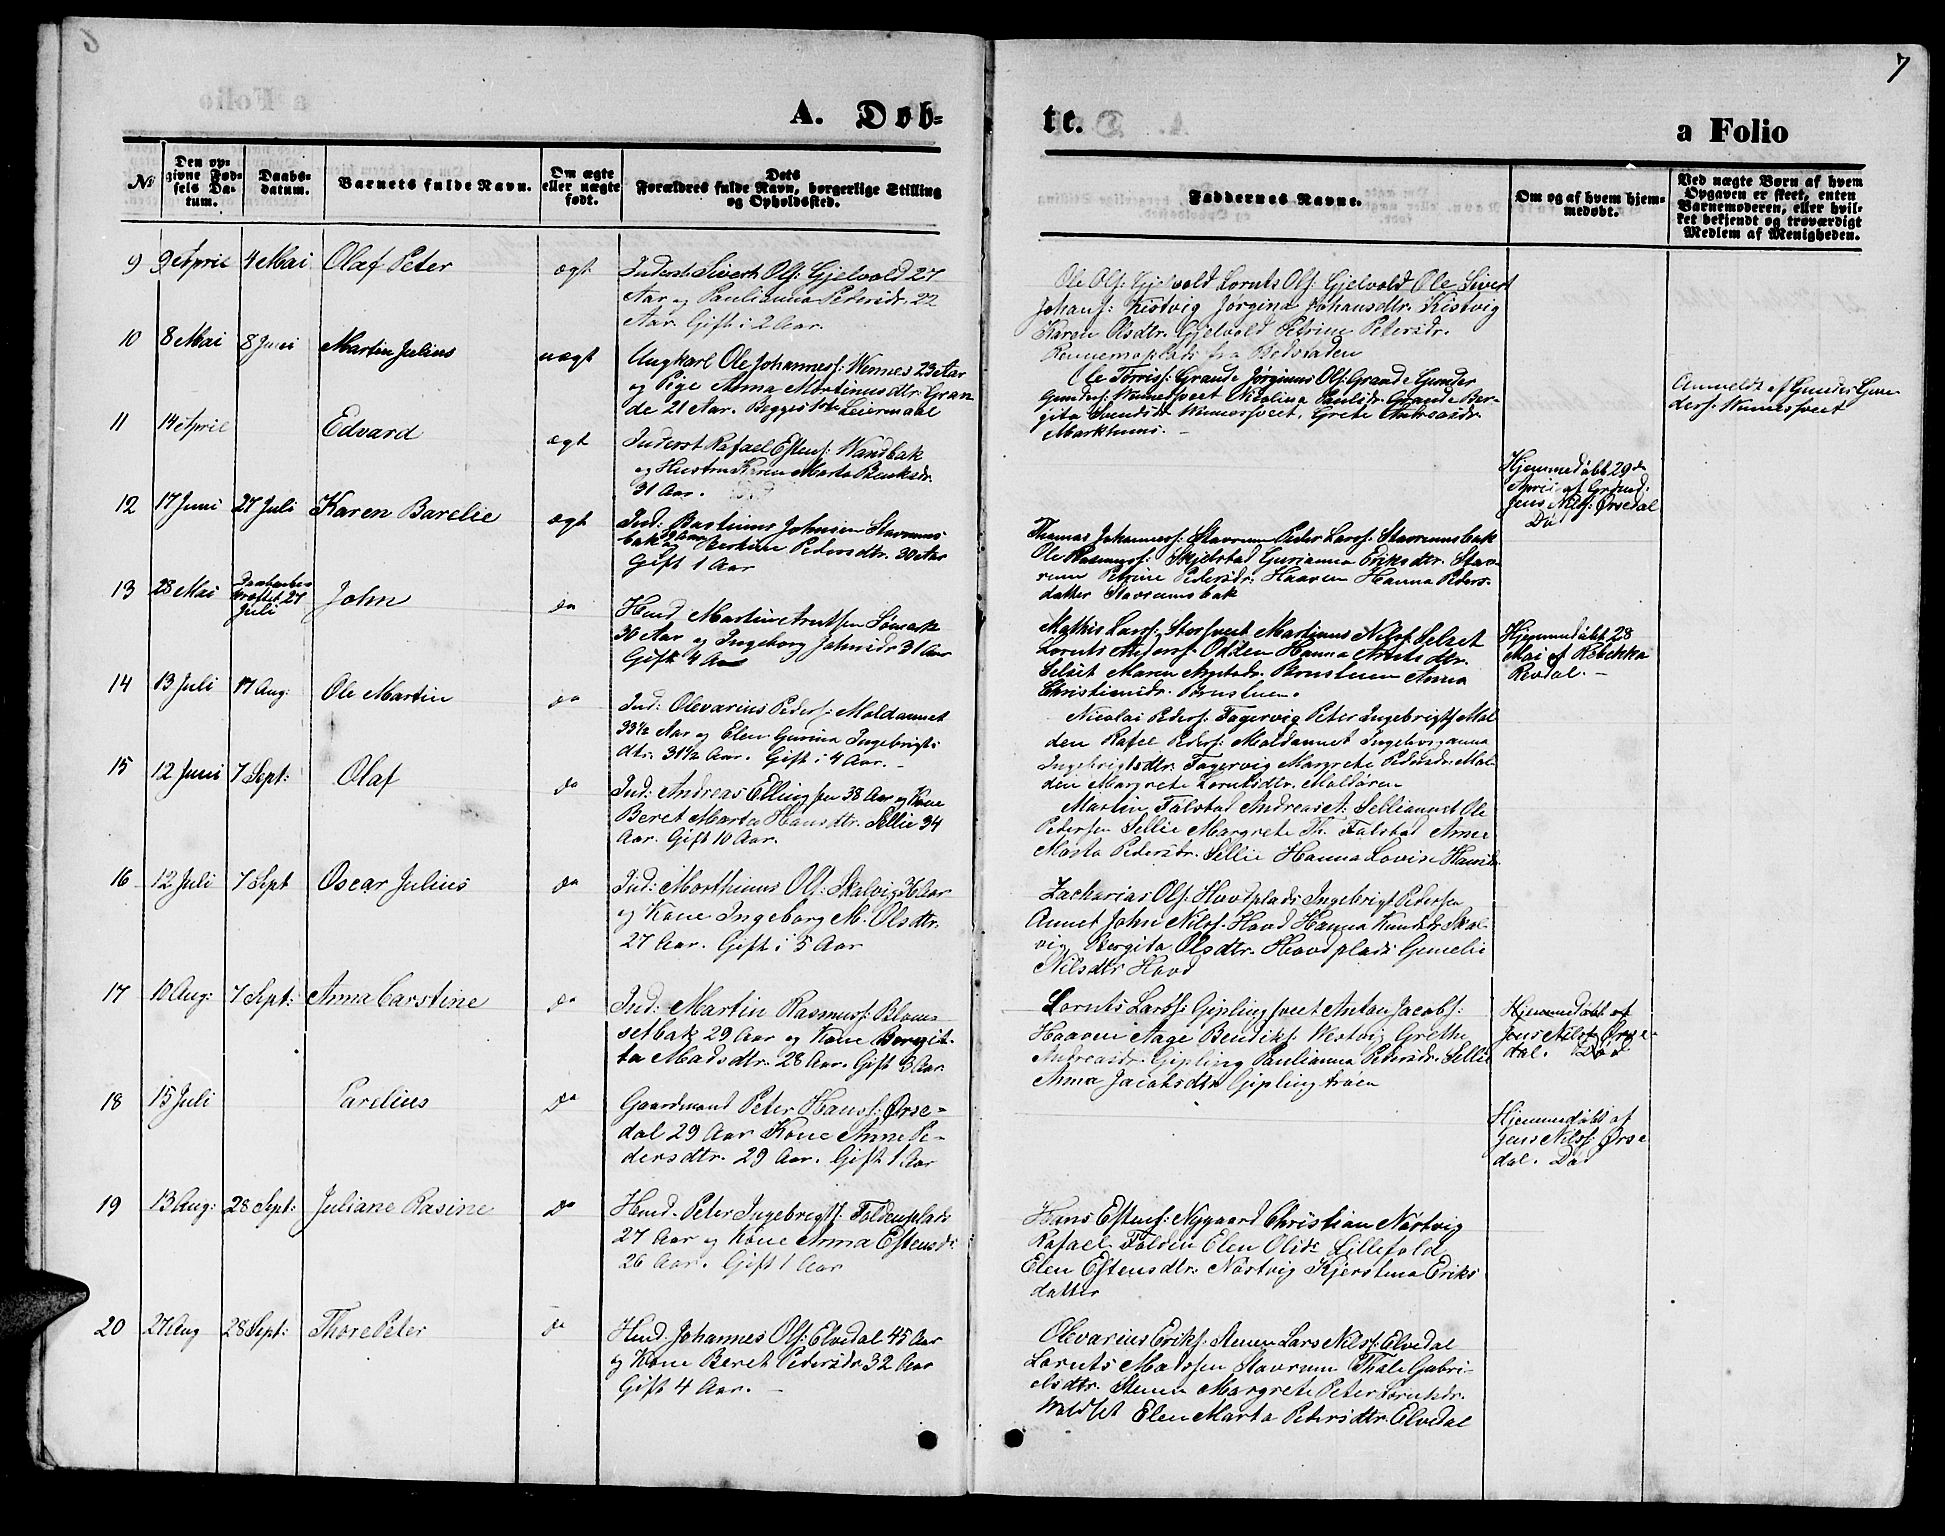 7
A. Døb-
te.
a Folio
No
Den op-
givne Fød-
sels Da-
tum.
Daabs-
datum.
Barnets fulde Navn.
Om ægte
eller uægte
født.
Dets
Forældres fulde Navn, borgerlige Stilling
og Opholdssted.
Faddernes Navne.
Om og af hvem hjem-
medøbt.
Ved uægte Børn af hvem
Opgaven er skeet, enten
Barnemoderen, eller hvil-
ket bekjendt og troværdigt
Medlem af Menigheden.
9 9 April 4 Mai Olaf Peter ægt
Inderst Sivert Ols: Gjelvold 27
Aar og Paulianna Pedersdr. 22
Aar. Gift i 2 Aar.
Ole Ols: Gjelvold Lornts Ols: Gjelvold Ole Sivert
Johans: Kistvig Jørgina Johansdtr. Kistvig
Karen Olsdtr. Gjelvold Petrine Petersdr.
Rennemsplads fra Bedstaden
10 8 Mai 8 Juni Martin Julius uægt
Ungkarl Ole Johanness: Wennes 23 Aar
og Pige Anna Martinusdtr. Gran
de 21 Aar. Begges 1ste Leiermaal
Ole Torriss: Grande Jørginus Ols: Grande Gunder
Gunders: Wennessveet Nicolina Paulsdr. Grande Ber-
gita Wennessveet. Grete Andreasdr.
Markhuus. -
Anmeldt af Gunder Gun
ders: Wennessveet
11 14 April Edvard ægt
Inderst Rafael Estens: Wandbak
og Hustru Karen Marta Benksdr.
31 Aar.
Hjemmedøbt 29de
April af Grdmd:
Jens Nils: Ørsedal
Død
12 17 Juni 27 Juli Karen Barelie ægt
Ind: Bastinus Johnsen Stavrums
bak 29 Aar og Pedersdtr. 30 Aar
Gift 1 Aar
Thomas Johanness: Stavrum Peder Lars: Stavrumsbak
Ole Rasmuss: Skjelstad Gurianna Eriksdtr. Stav-
rum Petrine Pedersdr. Haaven Hanna Peders-
datter Stavrumsbak
13 28 Mai Daabsbe
kræftet 27
Juli John do
Husd. Martin Arntsen Sømarke
30 Aar og Ingeborg Johnsdr. 31 Aar
Gift 4 Aar
Mathis Lars: Storsveet Martinus Nils: Selset
Lornts Odden Hanna Arntsdtr.
Selset Maren Bornstuen Anna
Christiansdr. Bornstuen.
Hjemmedøbt 28
Mai af Rebekka
Revdal. -
14 13 Juli 17 Aug: Ole Martin do
Ind: Olevarius Peders: Moldannet
33½ Aar og Elen Gurina Ingebrigts
dtr. 31½ Aar. Gift i 4 Aar. -
Nicolai Peders: Fagervig Peter Ingebrigts Mal
den Rafel Peders: Moldannet Ingeborganna
Ingebrigtsdtr. Fagervig Margrete Pedersdr. Mal-
den Margrete Lorntsdtr. Maldøren
15 12 Juni 7 Sept: Olaf do
Ind: Andreas Ellingsen 38 Aar og Kone
Beret Marta Hansdtr. Sellie 34
Aar. Gift 10 Aar.
Martin Falstad Andreas A. Selliannet Ole
Pedersen Sellie Margrete Th. Falstad Anne
Marta Pedersdr. Sellie Hanna Lovise Hansdr
16 12 Juli 7 Sept Oscar Julius do
Ind: Morthinus Ols: Skalvig 36 Aar
og Kone Ingeborg M. Olsdtr.
27 Aar. Gift i 5 Aar
Zacharias Ols: Hovdplads Ingebrigt Pedersen
Annet John Nils: Hovd Hanna Knudsdr. Skal-
vig Bergita Olsdtr. Hovdplads Gemelie
Nilsdtr Hovd
17 10 Aug: 7 Sept: Anna Carstine do
Ind: Martin Rasmus: Blom-
setbak 29 Aar og Kone Bergit-
ta Madsdtr. 28 Aar. Gift 3 Aar
Lornts Lars: Giplingsveet Anton Jacobs:
Haaven Aage Bendiks: Vestvig Grethe
Andreasdr. Gipling Paulianna Petersdr. Sellie
Anna Jacobsdtr Giplingtrøen
Hjemmedøbt af
Jens Nils: Ørse-
dal. Død
18 15 Juli Parelius Do
Gaardmand Peter Hans: Ørse-
dal 29 Aar Kone Anne Pe-
dersdtr. 29 Aar. Gift 1 Aar
Hjemmedøbt af
Jens Nils: Ørse
dal. Død
19 13 Aug: 28 Sept: Juliane Rasine Do
Husd. Peter Ingebrigts: Foldenplads
27 Aar og Kone Anna Estensdr
26 Aar. Gift 1 Aar
Hans Estens: Nygaard Christian Nøstvig
Rafael Folden Elen Olsdr Lillefold
Elen Estensdtr. Nøstvig Kjerstina Eriks
datter
20 27 Aug 28 Sept: Thore Peter do
Husd. Johannes Ols: Elvedal 45 Aar
og Kone Beret Pedersdr. 32 Aar
Gift 4 Aar. -
Olevarius Eriks: Stenen Lars Nils: Elvedal
Lornts Madssen Stavrum Thale Gabri-
elsdtr. Stenen Margrete Peter Lorntsdr.
Voldset Elen Marta Petersdtr. Elvedal